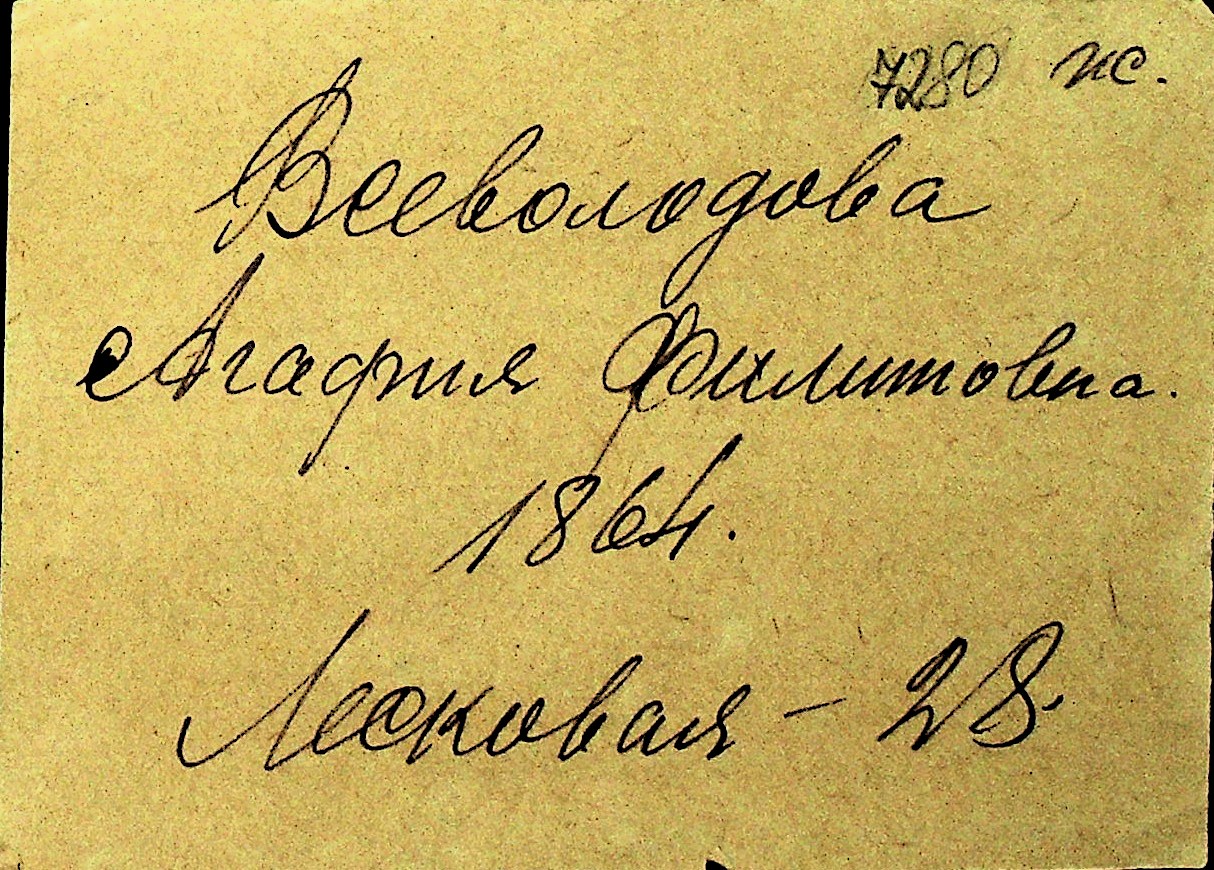 7280 пс.
Всеволодова
Агафия Филиповна.
1864.
Лесковая - 28.